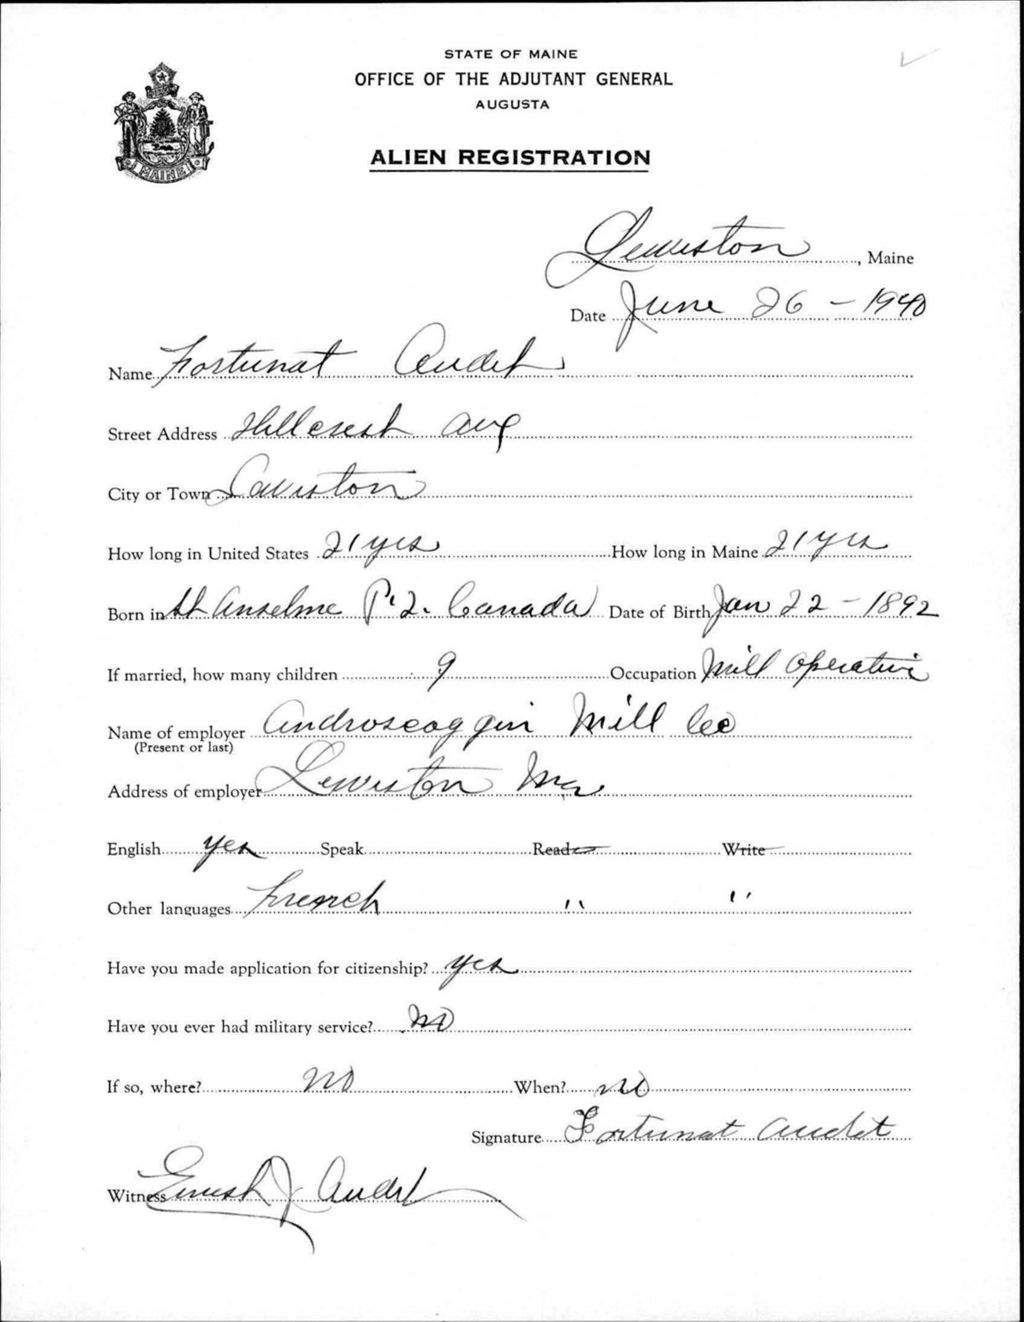 STATE OF MAINE
OFFICE OF THE ADJUTANT GENERAL
AUGUSTA
ALIEN REGISTRATION
MAINE
Lewiston, Maine
Date June 26 - 1940
Name Fortunat Audet
Street Address Hillcrest Ave
City or Town Lewiston
How long in United States 21 yrs How long in Maine 21 yrs
Born in St Anselme P.Q. Canada Date of Birth Jan 22 - 1892
If married, how many children 9 Occupation Mill Operative
Name of employer Androscoggin Mill Co
(Present or last)
Address of employer Lewiston Me
English yes Speak Read Write
Other languages French " "
Have you made application for citizenship? yes
Have you ever had military service? No
If so, where? No When? no
Signature Fortunat Audet
Witness Ernest J Audet